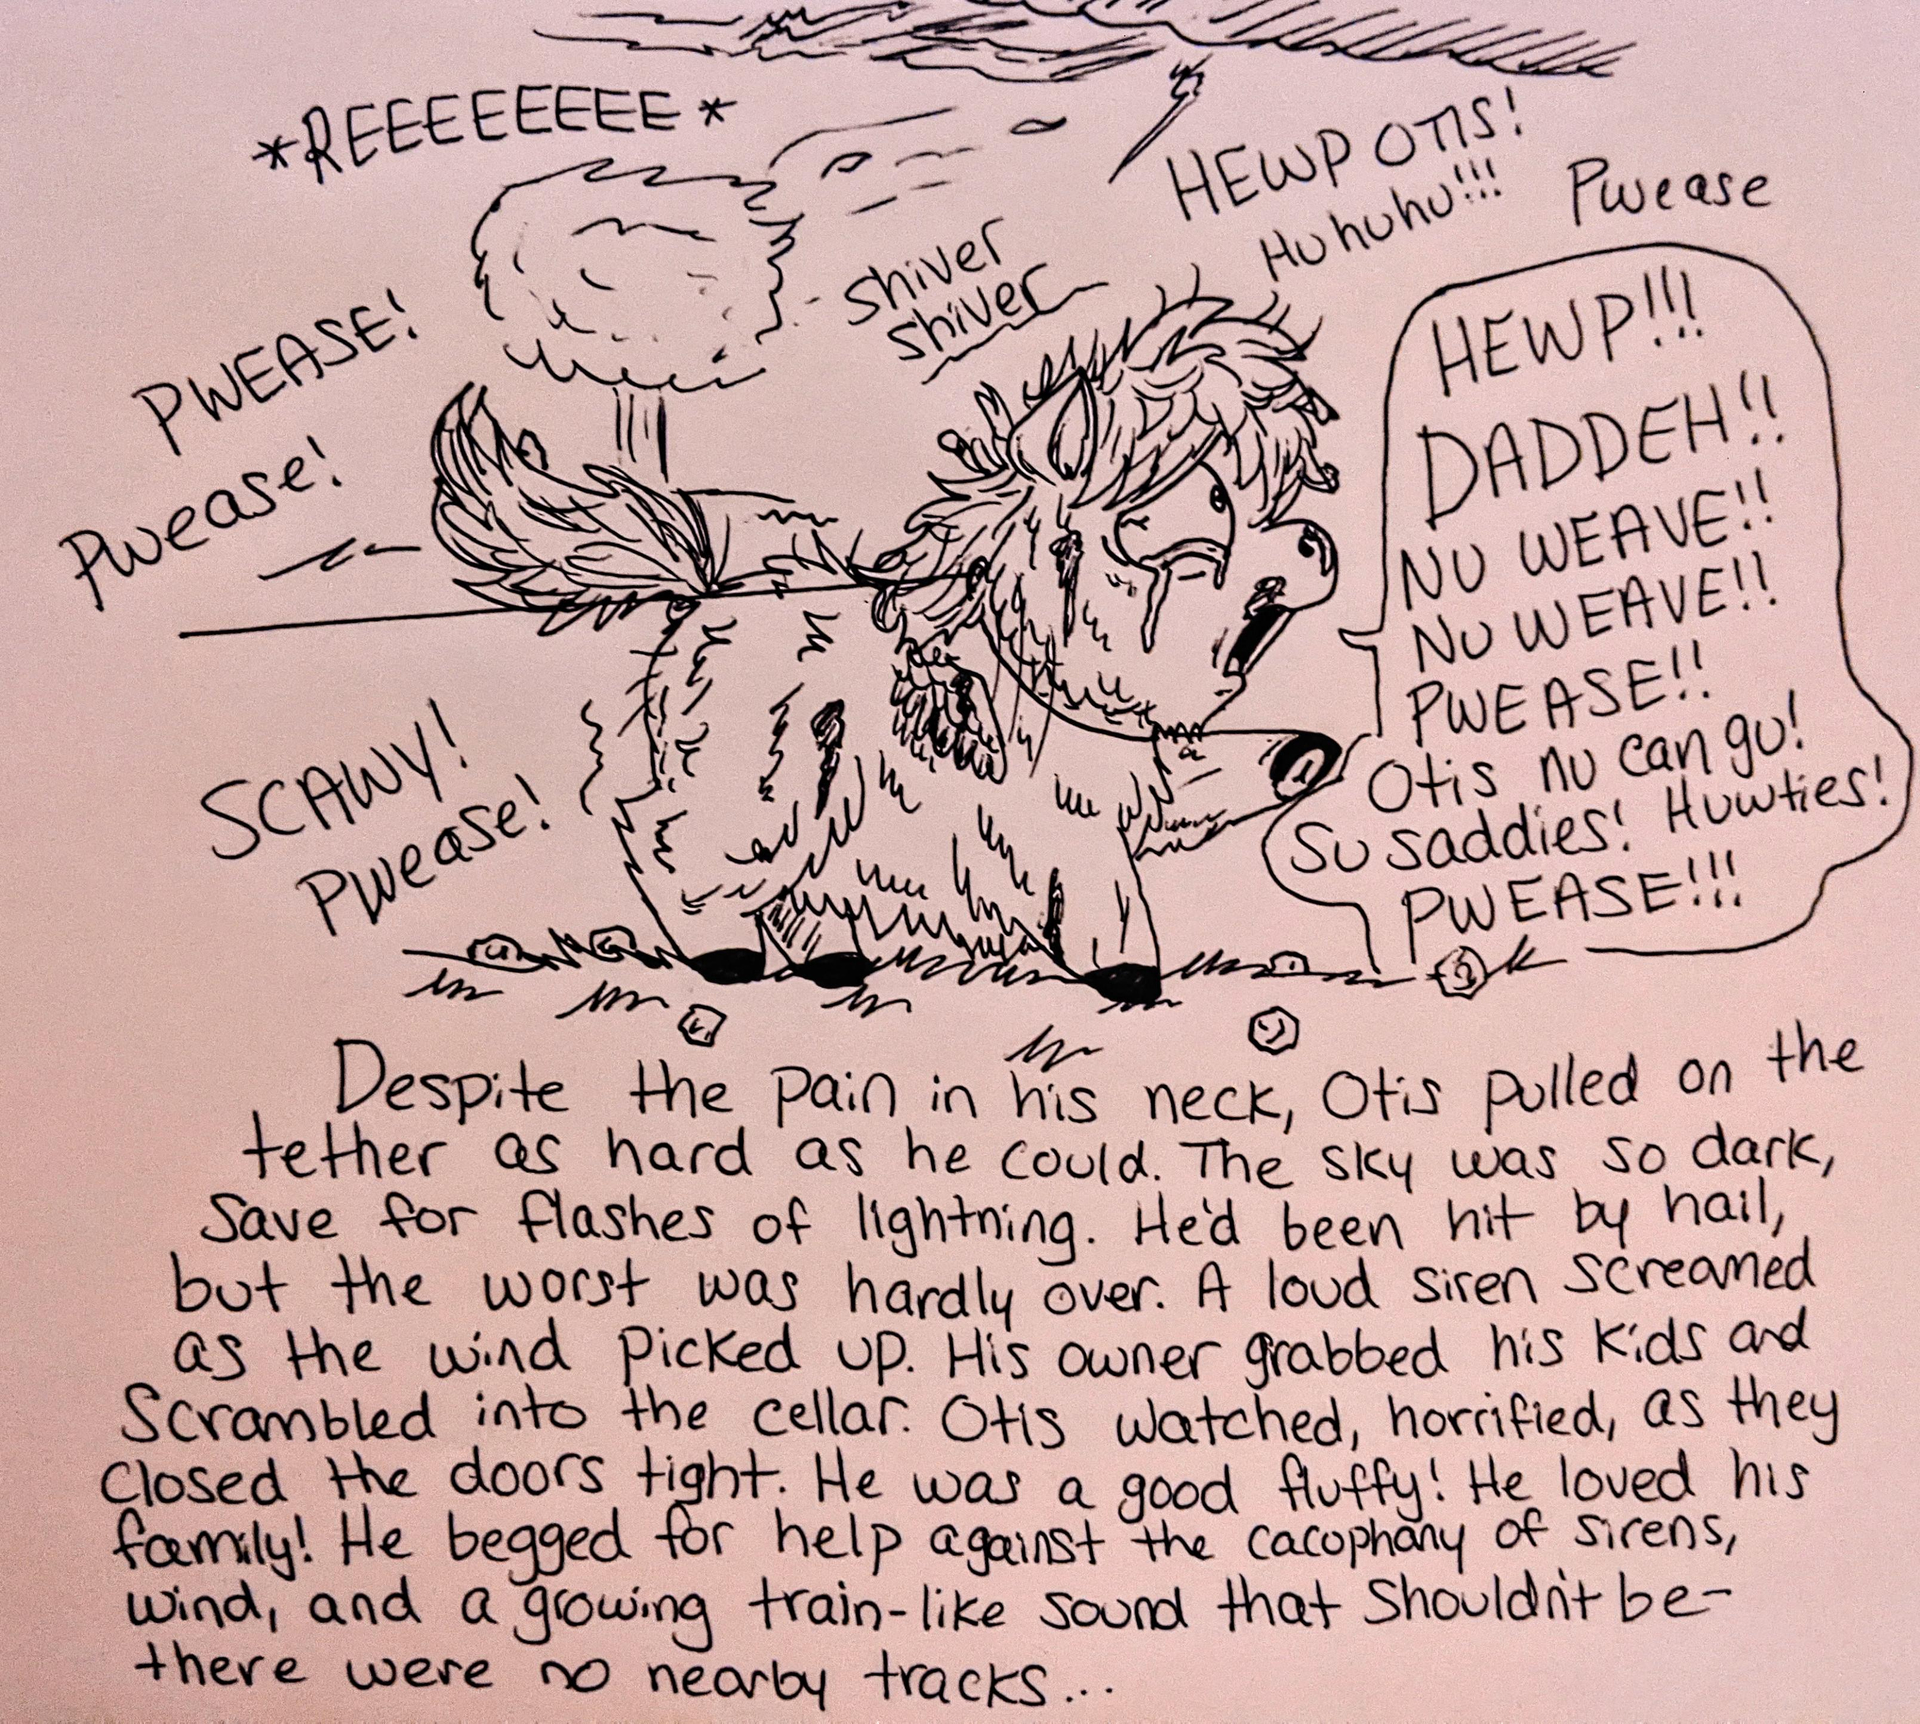 *REEEEEEEE*
HEWP OTIS!
Huhuhu!!!
Pwease
Shiver
Shiver
PWEASE!
Pwease!
SCAWY!
Pwease!
HEWP!!!
DADDEH!!
NU WEAVE!!
NU WEAVE!!
PWEASE!!
Otis nu can gu!
Su saddies! Huwties!
PWEASE!!!
Despite the pain in his neck, Otis pulled on the
tether as hard as he could. The sky was so dark,
Save for flashes of lightning. He'd been hit by hail,
but the worst was hardly over. A loud siren screamed
as the wind picked up. His owner grabbed his kids and
Scrambled into the cellar. Otis watched, horrified, as they
closed the doors tight. He was a good fluffy! He loved his
family! He begged for help against the cacophany of sirens,
wind, and a growing train-like sound that shouldn't be-
there were no nearby tracks...